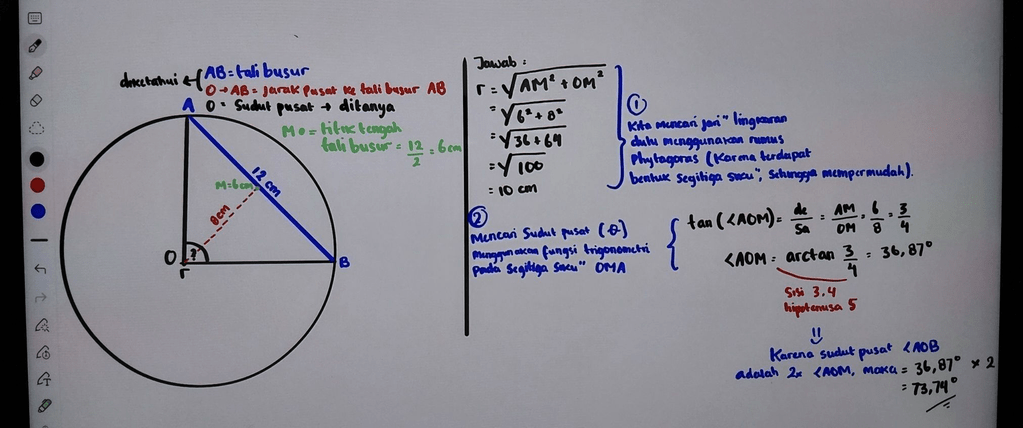 diketahui
AB = tali busur
O → AB = jarak pusat ke tali busur AB
O = Sudut pusat → ditanya
A
M = titik tengah
tali busur = 12/2 = 6 cm
12 cm
M = 6cm
8cm
O
?
r
B
Jawab :
r = √AM² + OM²
= √6² + 8²
= √36 + 64
= √100
= 10 cm
①
Kita mencari jari" lingkaran
dulu menggunakan rumus
Phytagoras (Karena terdapat
bentuk segitiga siku", sehingga mempermudah).
②
Mencari Sudut pusat (θ)
Menggunakan fungsi trigonometri
pada segitiga siku" OMA
tan (∠AOM) = de/sa = AM/OM = 6/8 = 3/4
∠AOM = arctan 3/4 = 36,87°
Sisi 3.4
hipotenusa 5
Karena sudut pusat ∠AOB
adalah 2x ∠AOM, maka = 36,87° × 2
= 73,74°